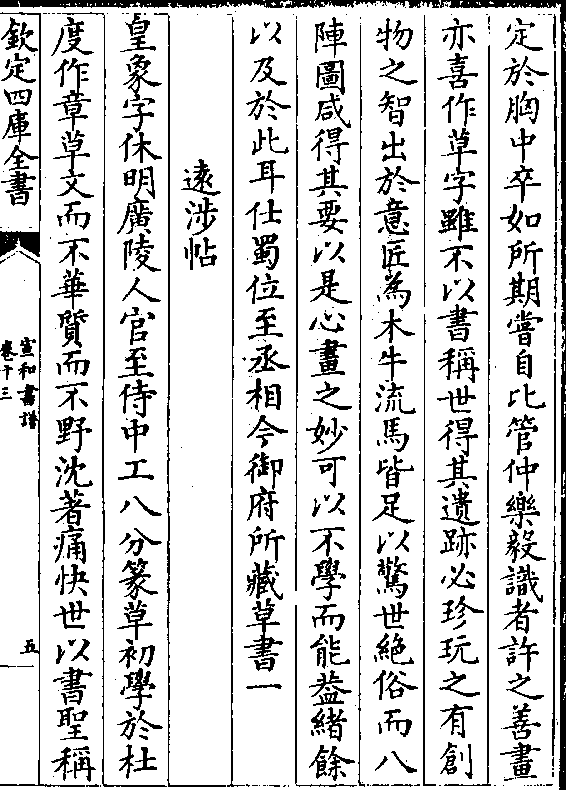 定於胸中卒如所期嘗自比管仲樂毅識者許之善畫
亦喜作草字雖不以書稱世得其遺跡必珍玩之有創
物之智出於意匠為木牛流馬皆足以驚世絶俗而八
陣圖咸得其要以是心畫之妙可以不學而能葢緒餘
以及於此耳仕蜀位至丞相今御府所藏草書一
逺涉帖
皇象字休明廣陵人官至侍中工八分篆草初學於杜
度作章草文而不華質而不野沈著痛快世以書聖稱
欽定四庫全書
宣和書譜
卷十三
五